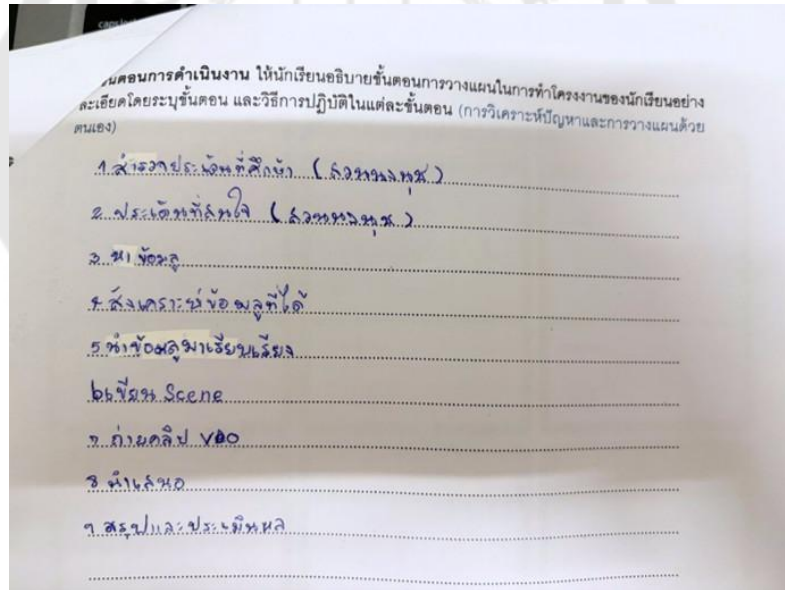 caps lock
ั้นตอนการดำเนินงาน ให้นักเรียนอธิบายขั้นตอนการวางแผนในการทำโครงงานของนักเรียนอย่าง
ละเอียดโดยระบุขั้นตอน และวิธีการปฏิบัติในแต่ละขั้นตอน (การวิเคราะห์ปัญหาและการวางแผนด้วย
ตนเอง)
1 สำรวจประเด็นที่ศึกษา (สวนนงนุช)
2 ประเด็นที่สนใจ (สวนนงนุช)
3 หาข้อมูล
4 สังเคราะห์ข้อมูลที่ได้
5 นำข้อมูลมาเรียบเรียง
6 เขียน Scene
7 ถ่ายคลิป VDO
8 นำเสนอ
9 สรุปและประเมินผล